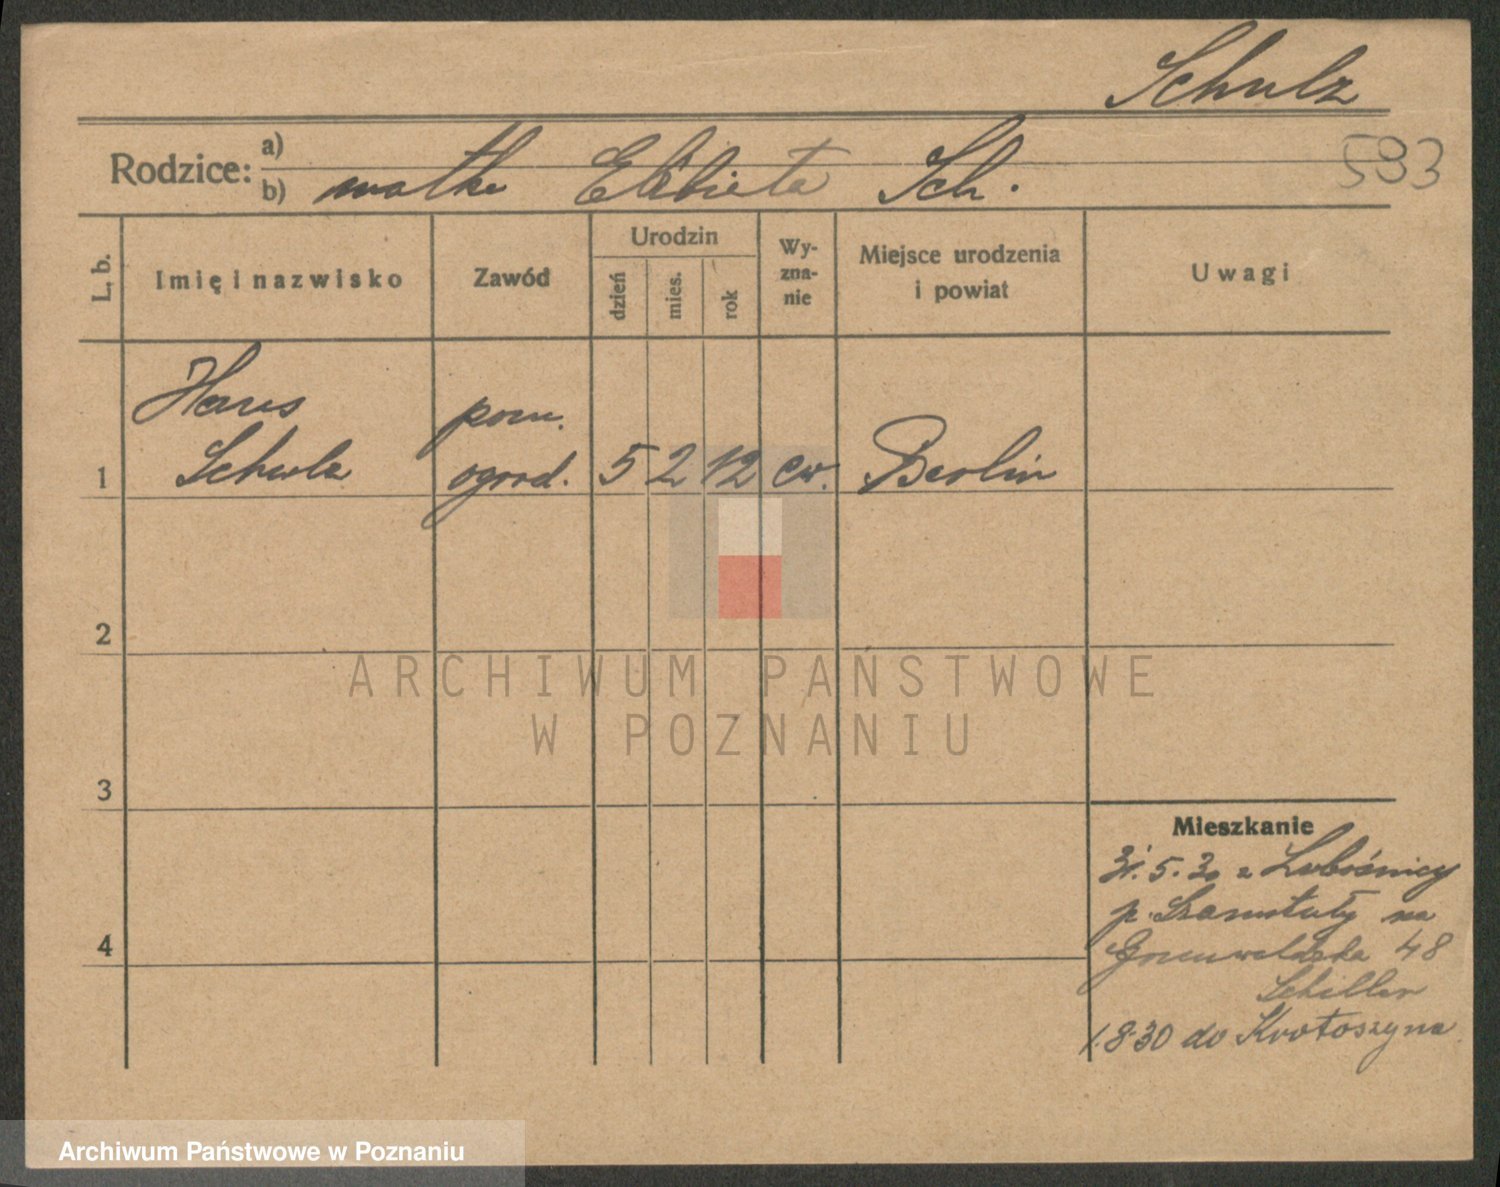 Schulz
593
Rodzice: a)
b) matka Elżbieta Sch.
L. b.
Imię i nazwisko
Zawód
Urodzin
dzień
mies.
rok
Wy-
zna-
nie
Miejsce urodzenia
i powiat
Uwagi
Hans
Schulz
pom.
ogrod.
1
5
2
12
ew.
Berlin
2
3
4
ARCHIWUM PAŃSTWOWE
W POZNANIU
Mieszkanie
5. 30 z Lubośnicy
p. Szamotuły na
Grunwaldzka 48
Schiller
1.8.30 do Krotoszyna
Archiwum Państwowe w Poznaniu